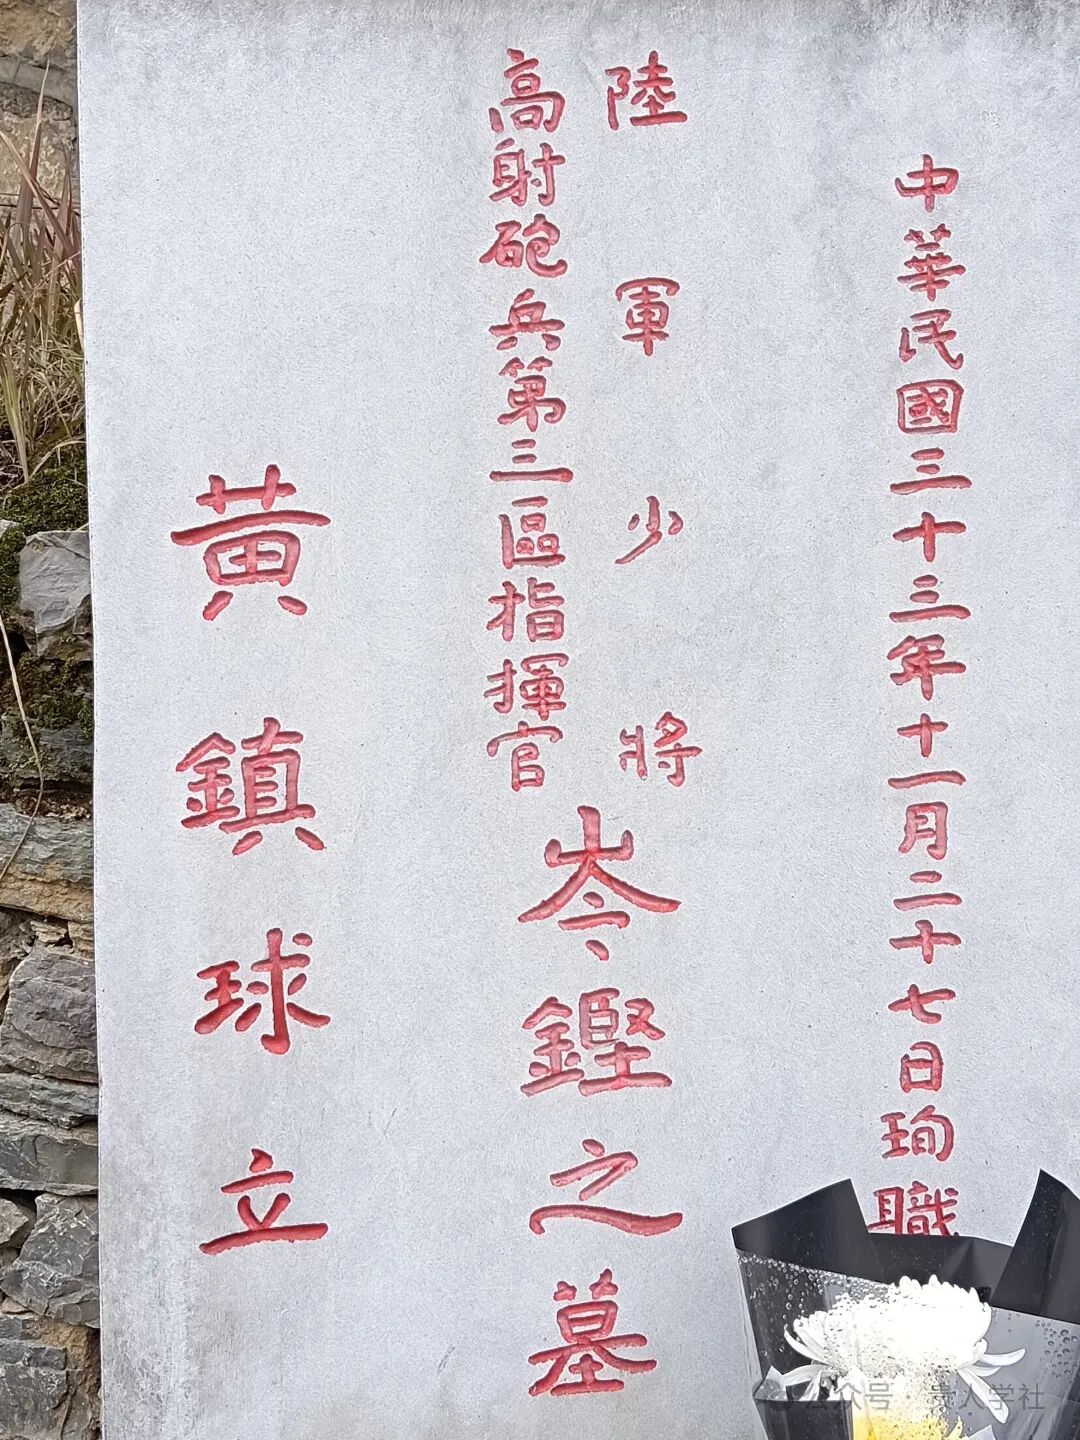 中華民國三十三年十一月二十七日珣職
陸軍少將
高射砲兵第三區指揮官
岑鏗之墓
黃鎮球立
公众号 贵人学社